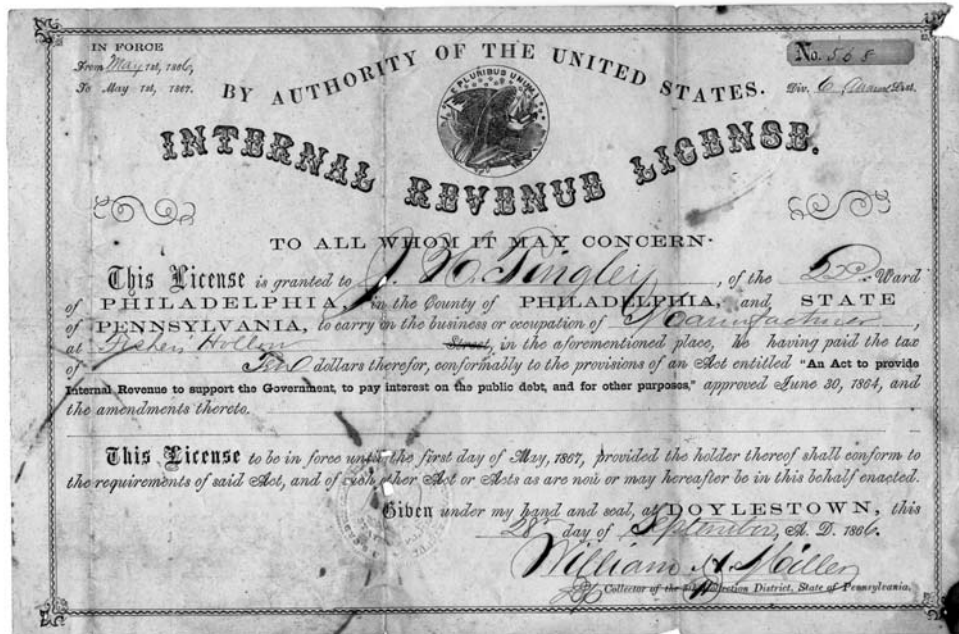 IN FORCE
From May 1st, 1866,
To May 1st, 1867.
No. 568
Div. 6
BY AUTHORITY OF THE UNITED STATES.
E PLURIBUS UNUM
INTERNAL REVENUE LICENSE.
TO ALL WHOM IT MAY CONCERN
This License is granted to J. H. Tingley, of the 22d Ward
of PHILADELPHIA, in the County of PHILADELPHIA, and STATE
of PENNSYLVANIA, to carry on the business or occupation of Manufacturer,
at Fishers Hollow Street, in the aforementioned place, he having paid the tax
of Ten dollars therefor, conformably to the provisions of an Act entitled "An Act to provide
Internal Revenue to support the Government, to pay interest on the public debt, and for other purposes," approved June 30, 1864, and
the amendments thereto.
This License to be in force until the first day of May, 1867, provided the holder thereof shall conform to
the requirements of said Act, and of such other Act or Acts as are now or may hereafter be in this behalf enacted.
Given under my hand and seal, at DOYLESTOWN, this
28 day of September, A. D. 1866.
William H. Miller
Collector of the Collection District, State of Pennsylvania.